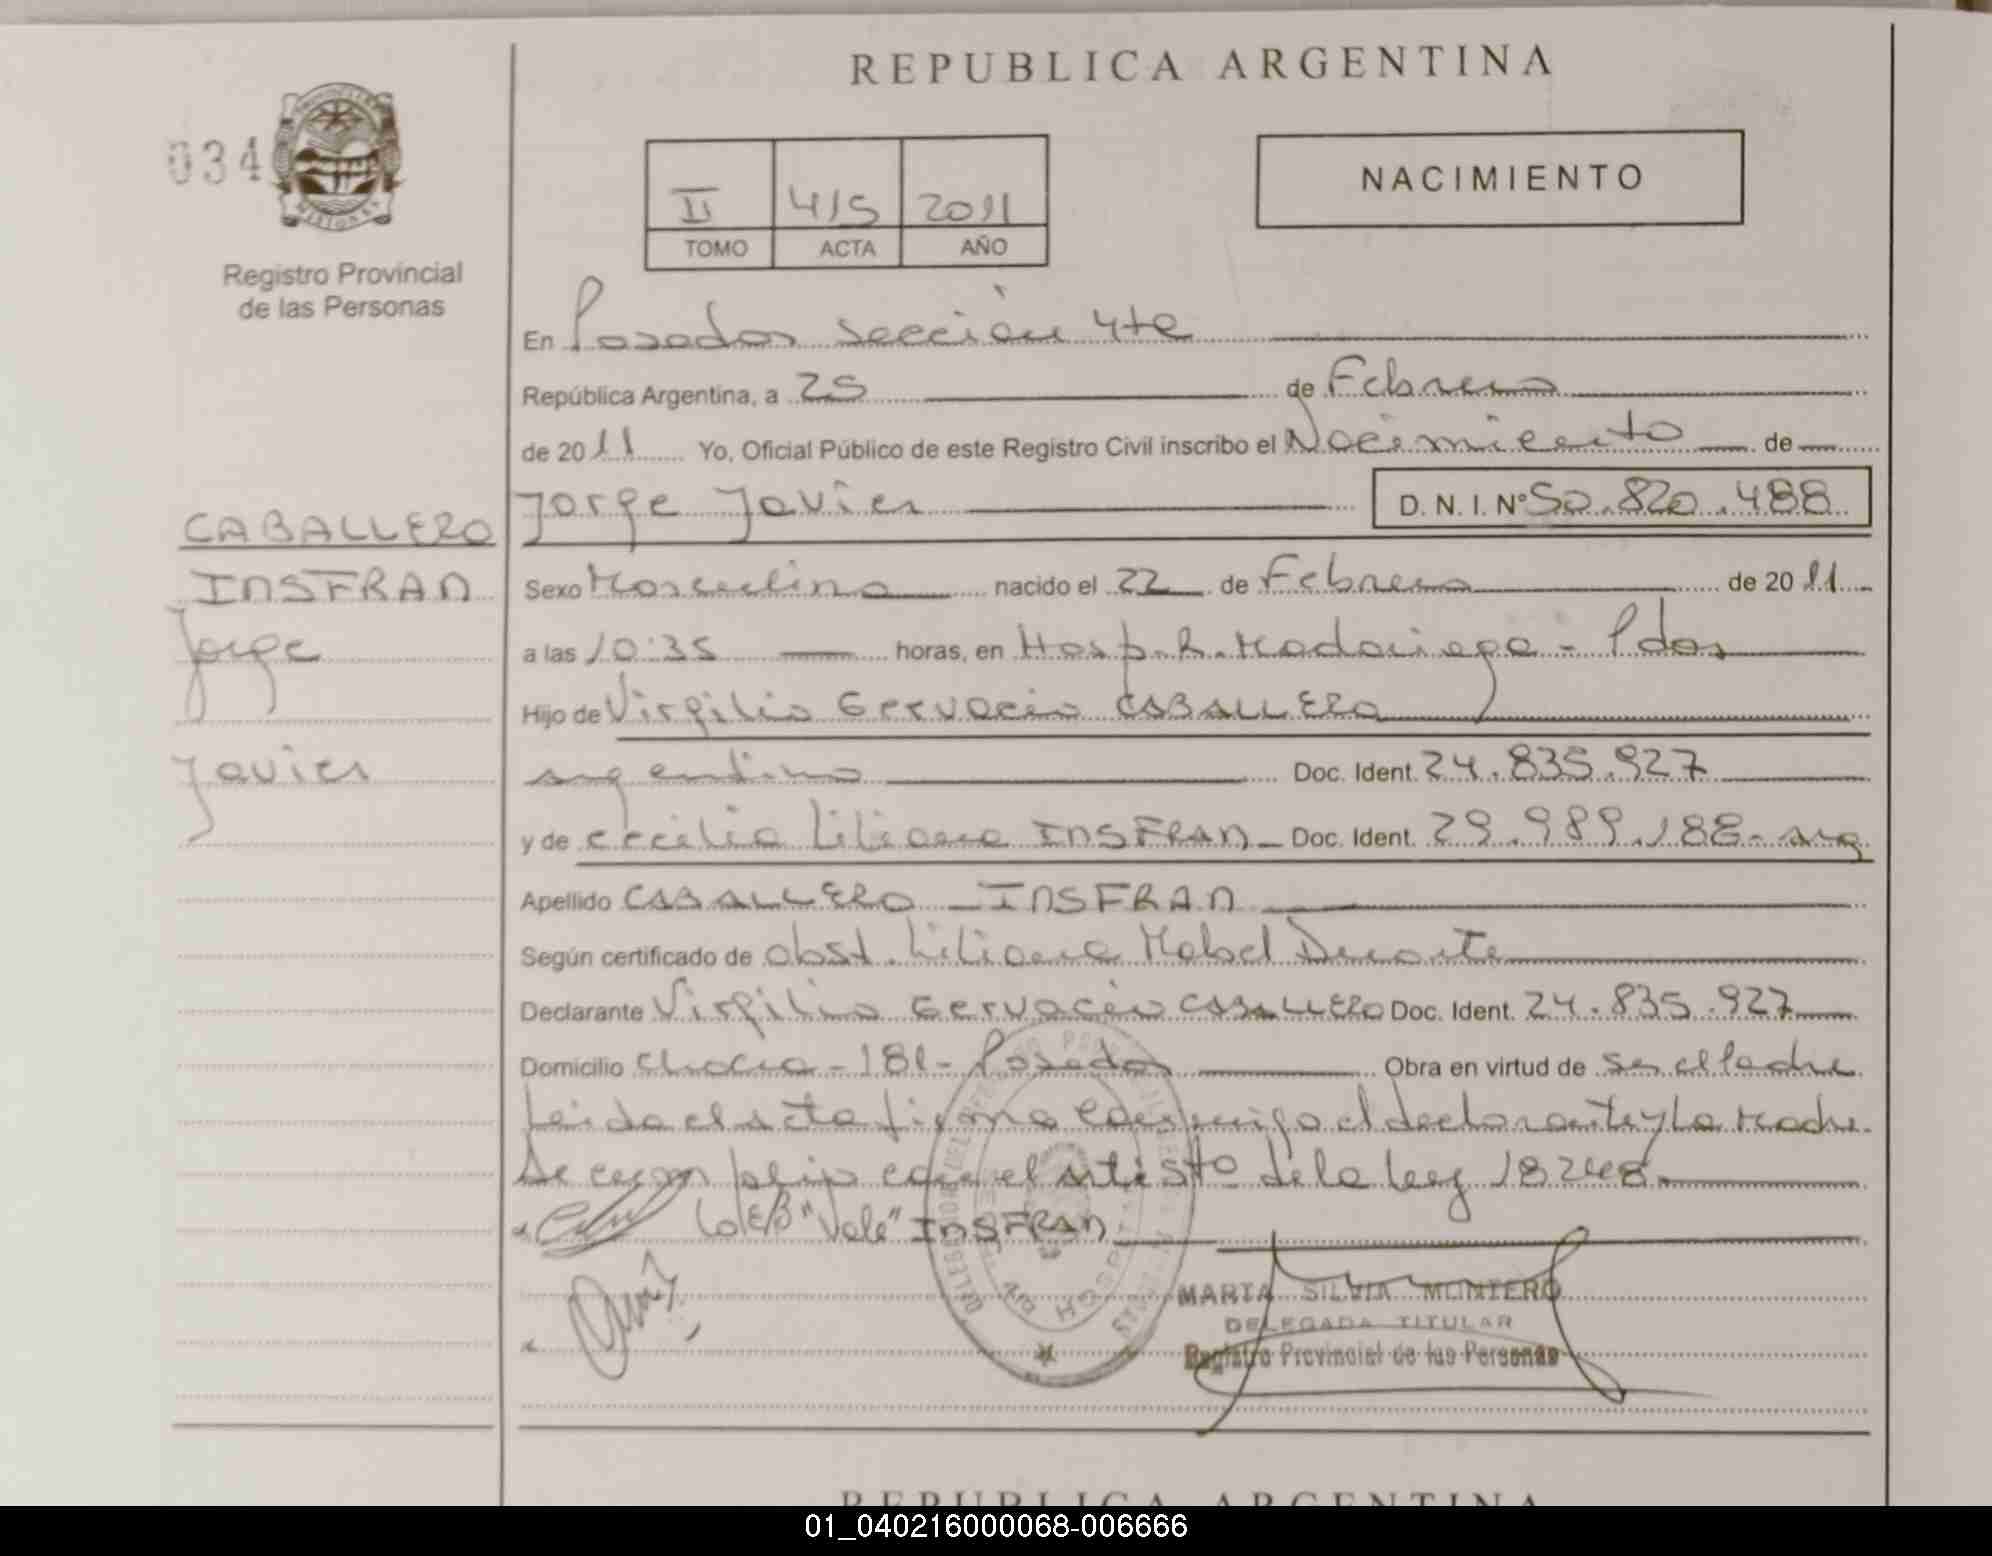 REPUBLICA ARGENTINA
034
NACIMIENTO
II 415 2011
TOMO ACTA AÑO
Registro Provincial
de las Personas
En Posadas sección 4te
República Argentina, a 25 de Febrero
de 2011 Yo, Oficial Público de este Registro Civil inscribo el Nacimiento de
CABALLERO
INSFRAN
Jorge
Javier
Jorge Javier D. N. I. Nº 50.820.488
Sexo Masculino nacido el 22 de Febrero de 2011
a las 10:35 horas, en Hosp. R. Madariaga - Pdas
Hijo de Virgilio Gervacio CABALLERO
argentino Doc. Ident. 24.835.927
y de Cecilia Liliana INSFRAN Doc. Ident. 29.989.188 - arg
Apellido CABALLERO INSFRAN
Según certificado de obst. Liliana Mabel
Declarante Virgilio Gervacio CABALLERO Doc. Ident. 24.835.927
Domicilio - 181 - Posadas Obra en virtud de ser el Padre
Leida el acta firma conmigo el declarante y la Madre.
Se cumplio con el art 5to de la Ley 18248.
"Vale" INSFRAN
MARTA SILVIA MONTERO
DELEGADA TITULAR
Registro Provincial de las Personas
REPUBLICA ARGENTINA
01_040216000068-006666